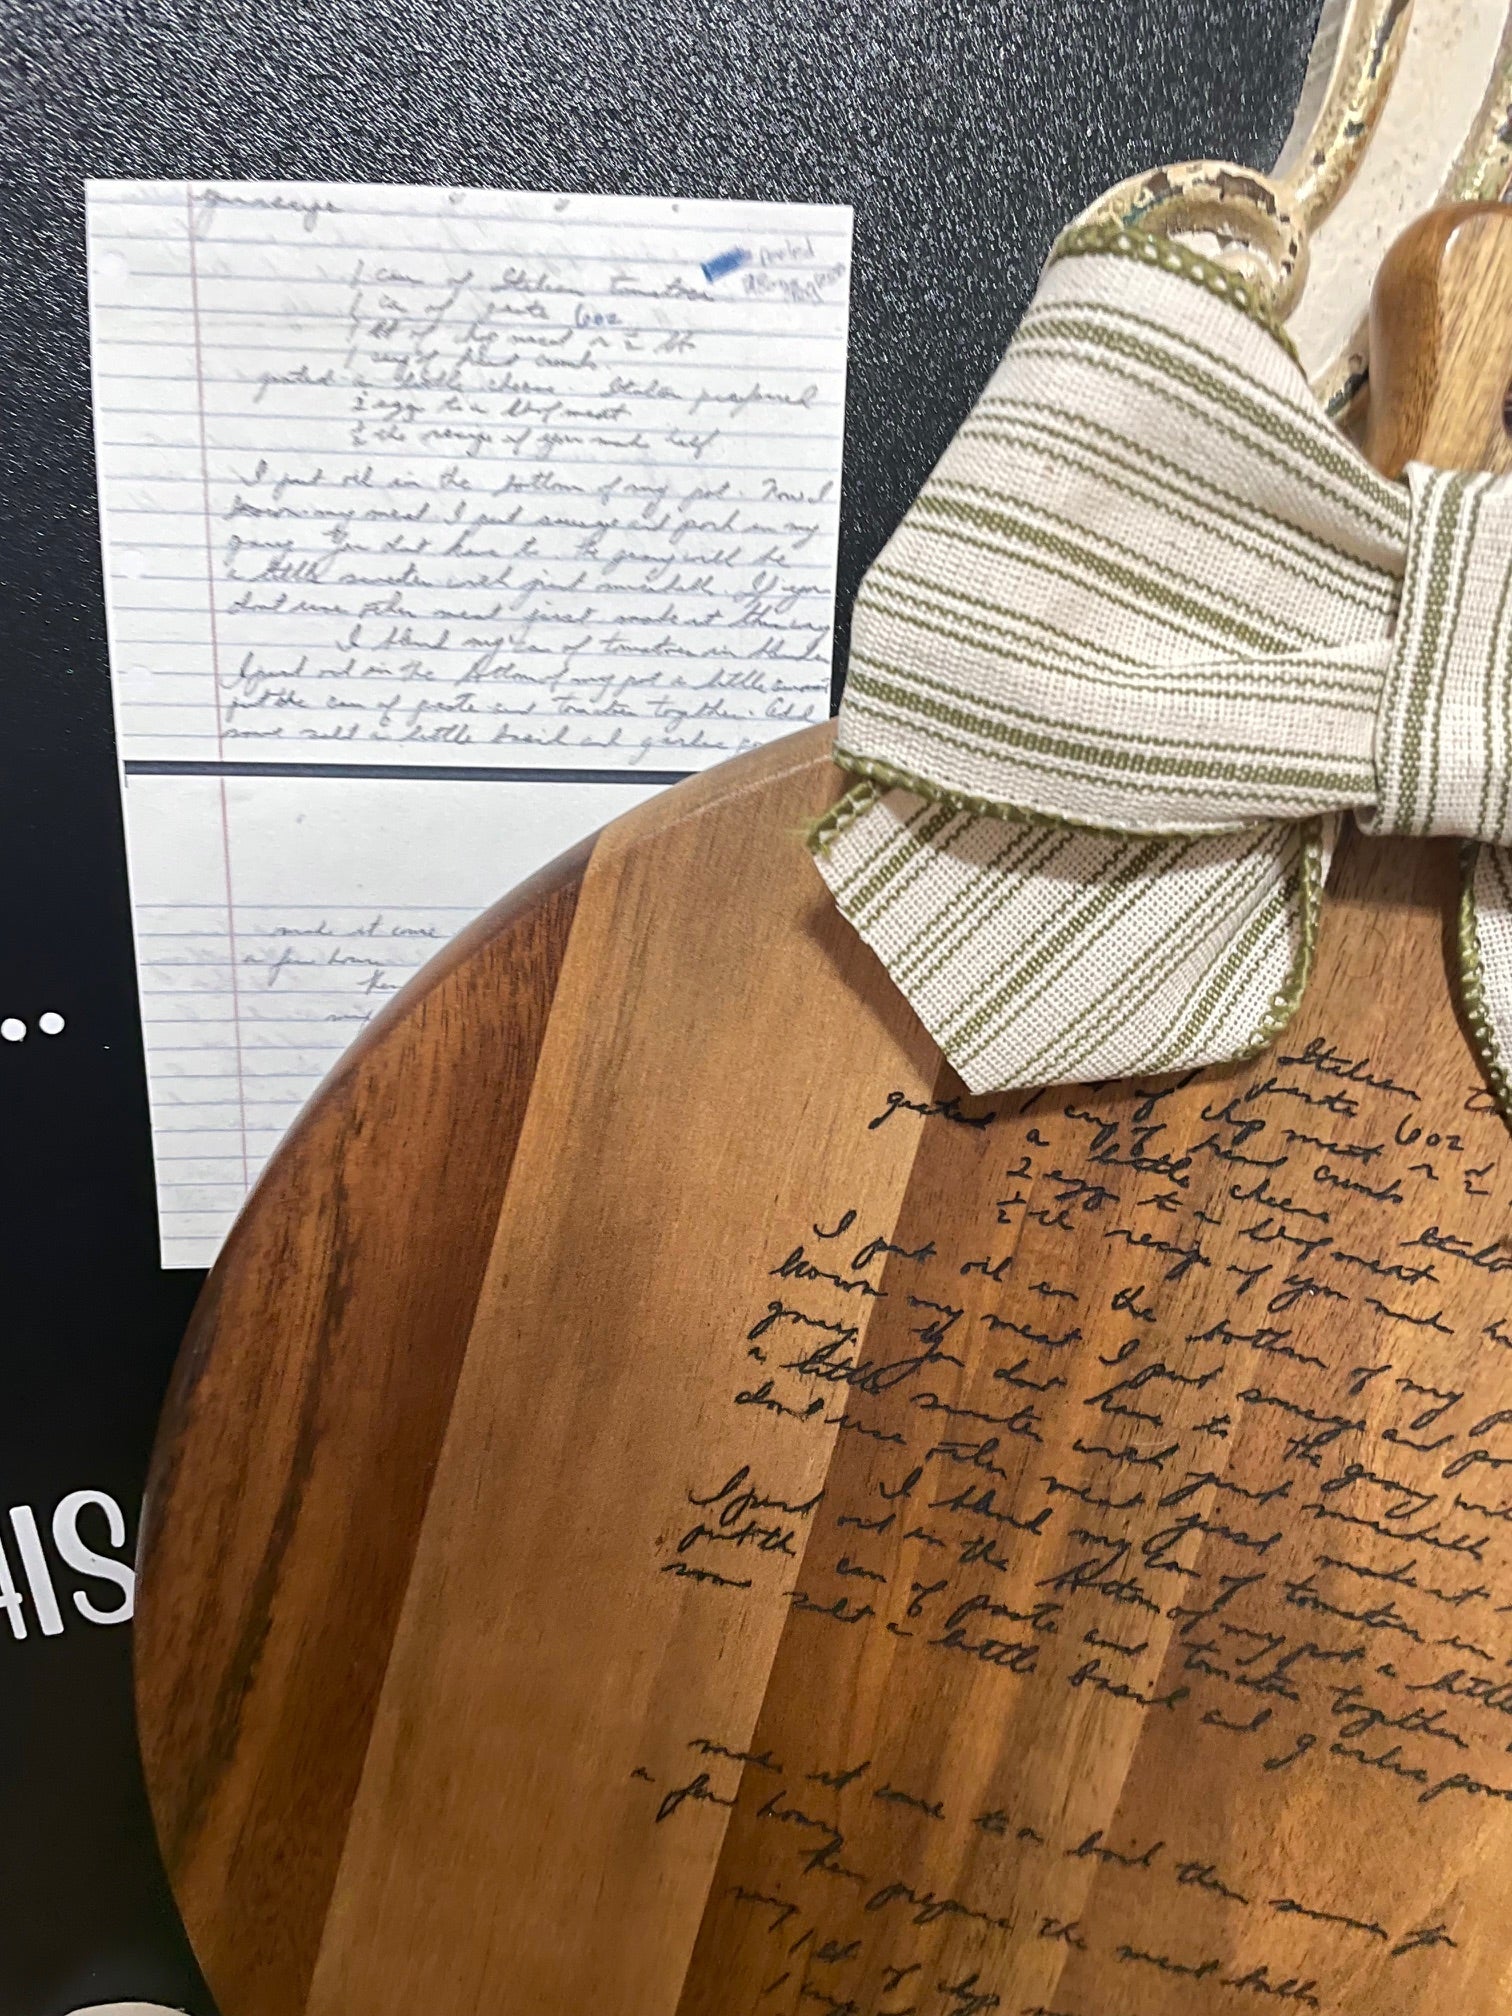 1 can of Italian tomatoes
peeled
1 can of paste 6oz
1 lb of chop meat
1 cup of bread crumbs
grated a little cheese. Italian preferred
egg to a lb of meat
½ the recipe if you make half
I put oil in the bottom of my pot. Now I
brown my meat I put sausage and pork in my
gravy. You dont have to the gravy will be
a little sweeter with just meatballs. If you
dont use other meat just make it
I blend my can of tomatoes in blender
I put oil in the bottom of my pot a little
put the can of paste and tomatoes together. Add
some salt a little basil and garlic
make it come
a few hours
then
..
HIS
Italian
paste 6oz
lb of chop meat
grated 1 cup of bread crumbs
a little cheese
egg to a lb of meat
½ the recipe if you make
I put oil in the bottom of my
brown my meat I put sausage and
gravy. You dont have to the gravy
a little sweeter with just meatballs
dont use other meat just make it
I blend my can of tomatoes in
I put oil in the bottom of my pot a little
put the can of paste and tomatoes together
some salt a little basil and garlic
make it come to a boil then simmer for
a few hours
then prepare the meat balls
1 lb of chop
1 cup of